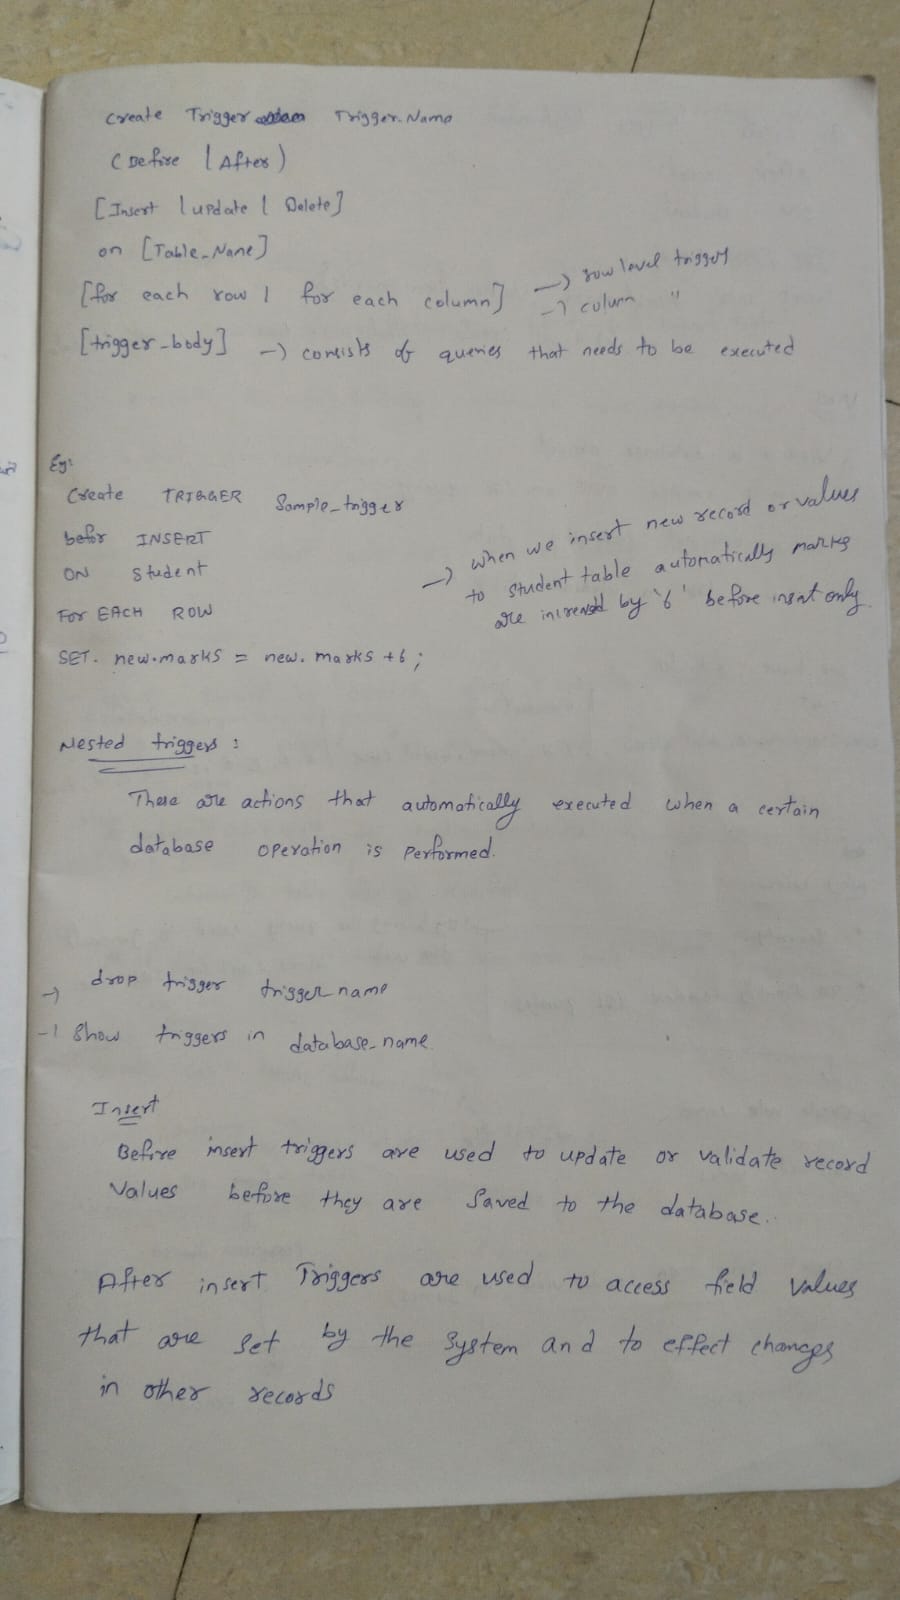 Create Trigger Trigger_Name
(Before | After)
[Insert | update | Delete]
on [Table_Name]
[for each row | for each column] -> row level triggers
-> column "
[trigger_body] -> consists of queries that needs to be executed
Eg:
Create TRIGGER Sample_trigger
befor INSERT
ON Student
For EACH ROW
SET. new.marks = new.marks +6;
-> when we insert new record or values
to student table automatically marks
are increased by '6' before insert only.
Nested triggers :
These are actions that automatically executed when a certain
database operation is performed.
-> drop trigger trigger_name
-> Show triggers in database_name.
Insert
Before insert triggers are used to update or validate record
values before they are Saved to the database..
After insert Triggers are used to access field values
that are set by the System and to effect changes
in other records